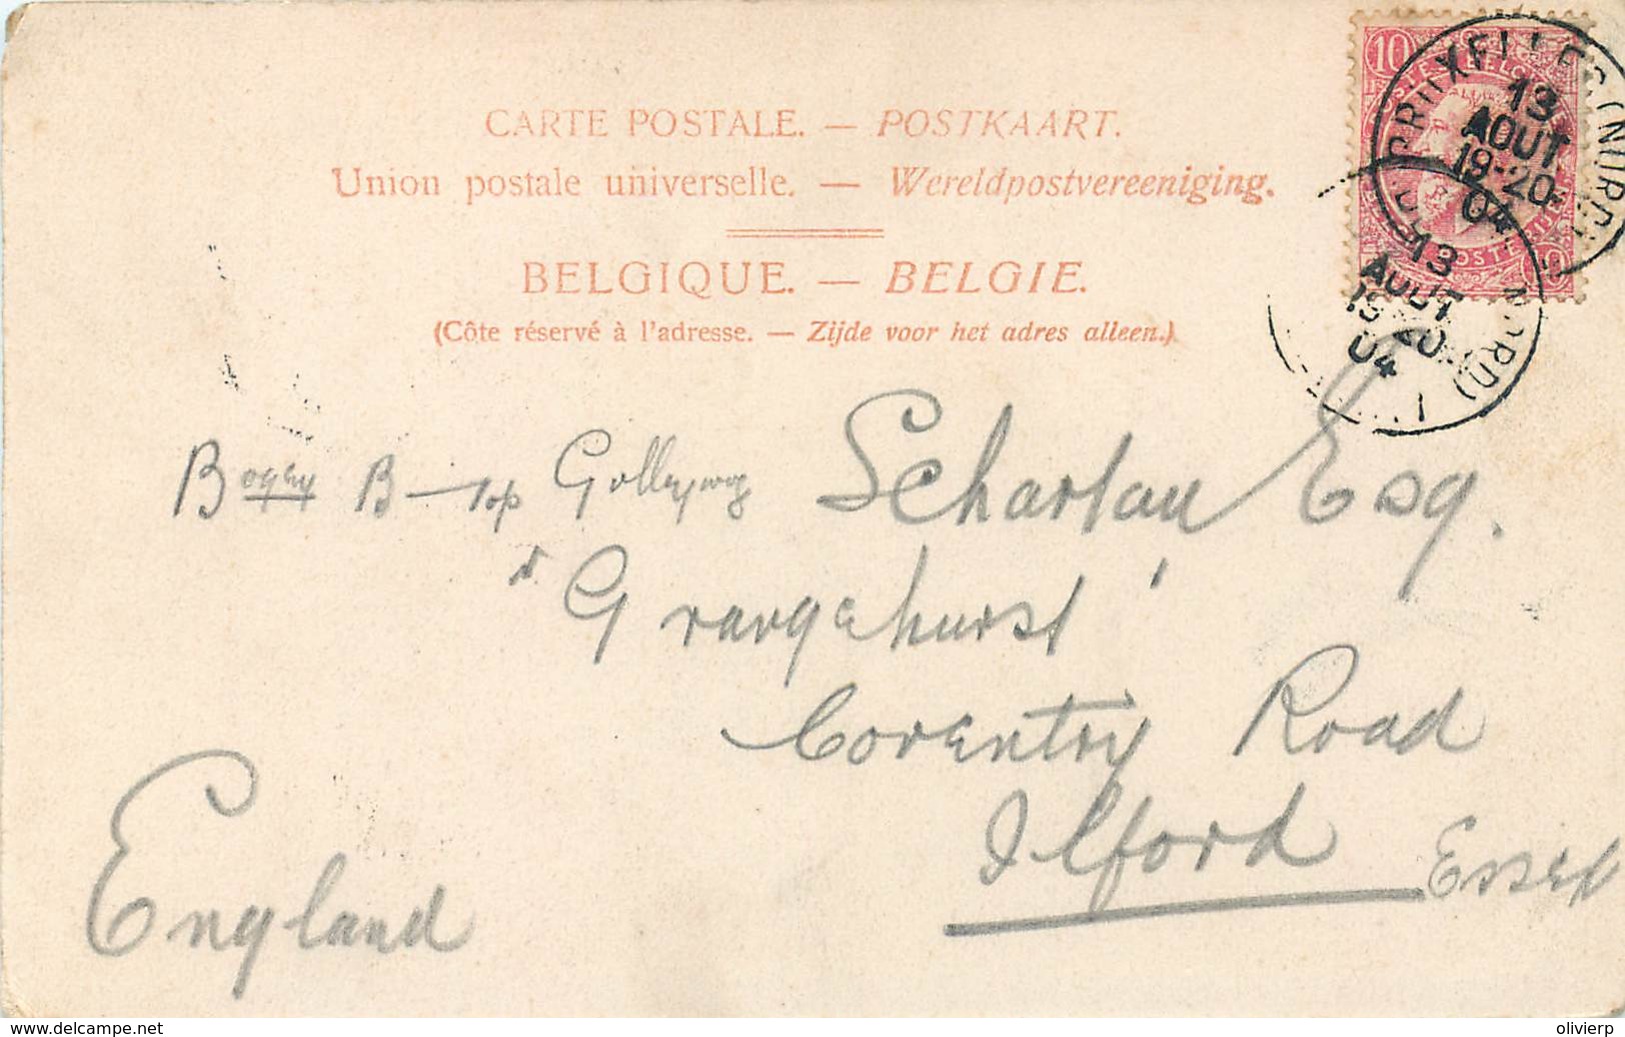 CARTE POSTALE. — POSTKAART.
Union postale universelle. — Wereldpostvereeniging.
BELGIQUE. — BELGIE.
(Côte réservé à l'adresse. — Zijde voor het adres alleen.)
10
BRUXELLES (NORD)
13
AOUT
19-20
04
13
AOUT
19-20
04
(NORD)
B B— Top Scharlau Esq.
"Grangehurst"
Coventry Road
Ilford Essex
England
www.delcampe.net
olivierp